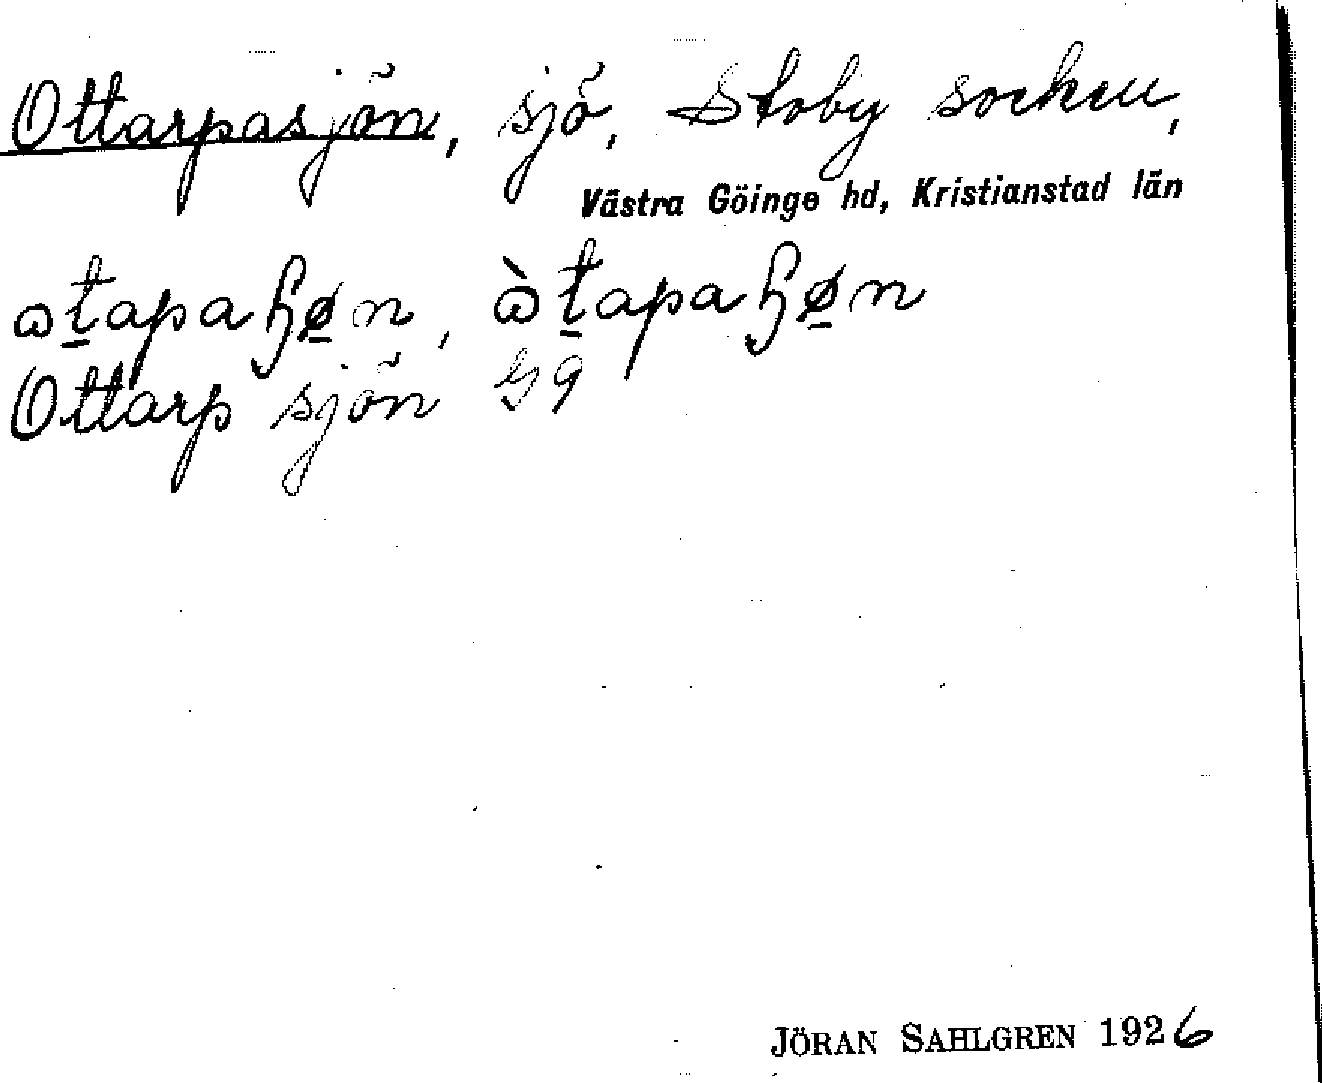 Ottarpasjön, sjö, Stoby socken,
Västra Göinge hd, Kristianstad län
ɷt̠apaɧø̠n, ɷ̀t̠apaɧø̠n
Ottarp sjön G9
JÖRAN SAHLGREN 1926